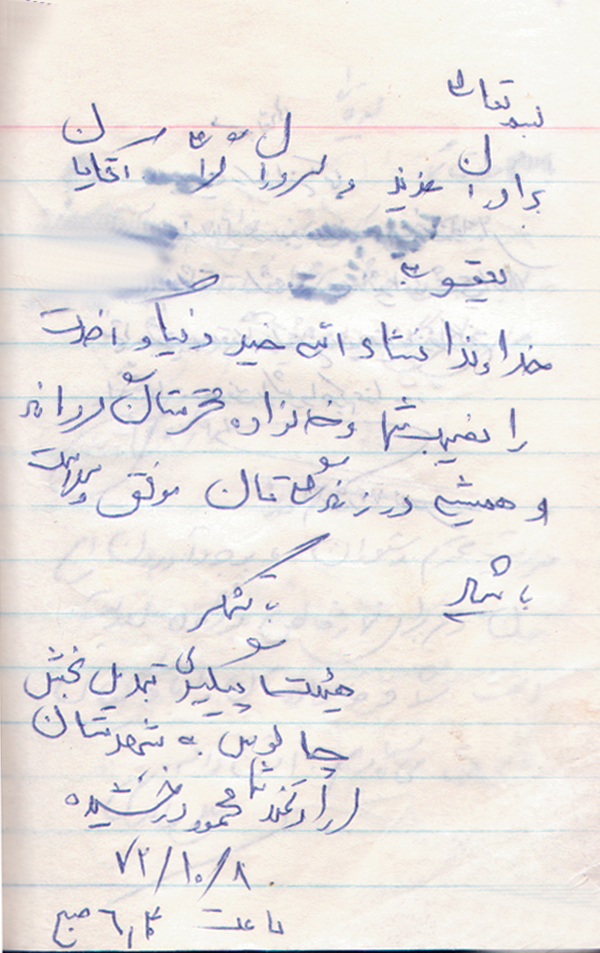 بسمه تعالی
برادران عزیز و سروران آقایان
یعقوب
خداوندا انشاء الله خیر دنیا و آخرت
را نصیب شما و خانواده محترمتان گرداند
و همیشه در زندگیتان موفق و
باشید
با تشکر
هیئت پیگیری تبدیل بخش
چالوس به شهرستان
ارادتمند شما محمود درخشیده
۷۲/۱۰/۸
ساعت صبح